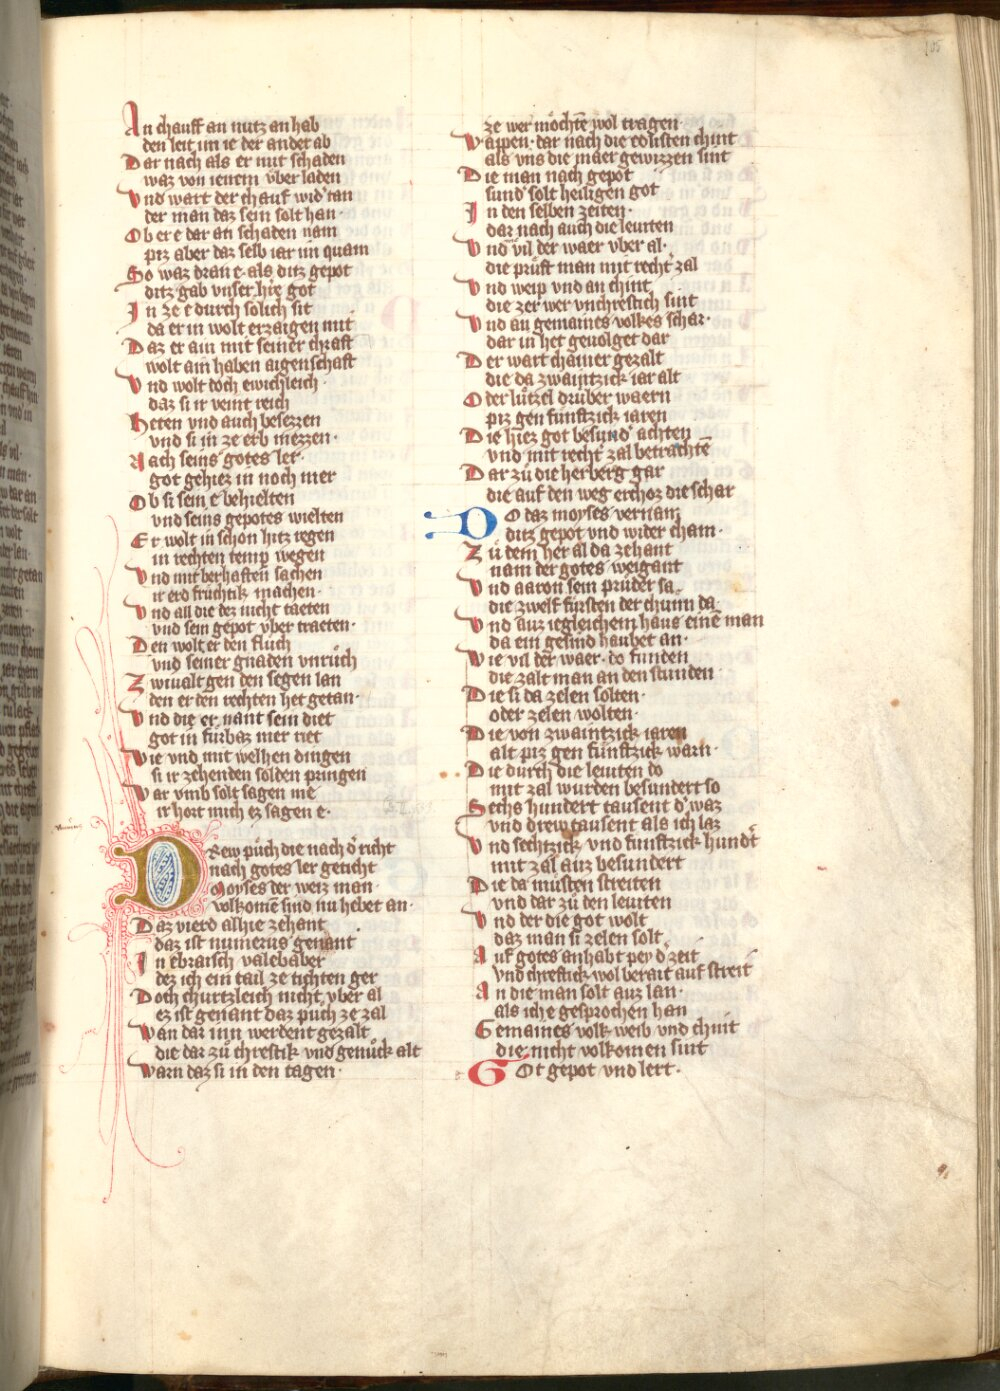 105
An chauff an nutz an hab
den leit im ie der ander ab
Dar nach als er mit schaden
waz von ienem vber laden
Vnd wart der chauf wid' tan
der man daz sein solt han·
Ob er e dar an schaden nam
piz aber daz selb iar im quam
So waz dran e als ditz gepot
ditz gab vnser hie got
In ze e durch solich sit
da er in wolt erzaigen mit
Daz er ain mit seiner chraft
wolt ain haben aigenschaft
Vnd wolt doch ewichleich·
daz si ir veint reich
Heten vnd auch besezzen
vnd si in ze erb mezzen·
Nach seins gotes ler·
got gehiez in noch mer
Ob si sein e behielten
vnd seins gepotes wielten
Er wolt in schon hitz regen
in rechten temp wegen
Vnd mit berhaften sachen
ir erd früchtik machen·
Vnd all die dez nicht taeten
vnd sein gepot vber traeten·
Den wolt er den fluch
vnd seiner gnaden vnrüch
Zwiualtgen den segen lan
den er den rechten het getan·
Vnd die er nant sein diet
got in fürbaz mer riet
Wie vnd mit welhen dingen
si ir zehenden solden pringen
War vmb solt sagen me
ir hort mich ez sagen e·
Drew püch die nach d' richt
nach gotes ler geticht
Moyses der weiz man·
volkomē sind nu hebet an·
Daz vierd alhie zehant
daz ist numerus genant
In ebraisch valebaber
dez ich ein tail ze tichten ger
Doch churtzleich nicht vber al
ez ist genant daz püch ze zal
Wan dar inn werdent gezalt
die dar zü chrestik vnd genück alt
Warn daz si in den tagen·
ze wer möchtē wol tragen·
Wappen· dar nach die edlisten chint
als vns die maer gewizzen sint
Die man nach gepot
sund' solt heiligen got
In den selben zeiten·
dar nach auch die leuiten
Vnd vil der waer vber al·
die prüft man mit recht zal
Vnd weip vnd an chint
die zer wer vnchrestich sint
Vnd an gemaines volkes schar·
dar in het geuolget dar
Der wart chainer gezalt
die da zwaintzick iar alt
Oder lützel drüber waern
piz gen fünftzick iaren
Die hiez got besund' achten
vnd mit recht zal betrachtē
Dar zü die herberg gar
die auf den weg erchoz die schar
Do daz moyses vernam
ditz gepot vnd wider cham·
Zü dem her al da zehant
nam der gotes weigant
Vnd aaron sein prüder sa
die zwelf fürsten der chunn da
Vnd auz iegleichem haus einē man
da ein gesind haubet an·
Wie vil der waer· do funden
die zalt man an den stunden
Die si da zelen solten·
oder zelen wolten·
Die von zwaintzick iaren
alt piz gen fünftzick warn·
Die durch die leuiten do
mit zal wurden besundert so
Sechs hundert tausent d' waz
vnd drew tausent als ich laz
Vnd sechtzick vnd fünftzick hundt
mit zal auz besundert
Die da müsten streiten
vnd dar zü den leuiten
Vnd der die got wolt
daz man si zelen solt
Auf gotes anhabt pey d' zeit
vnd chrestick wol berait auf streit
An die man solt auz lan·
als ich e gesprochen han
Gemaines volk weib vnd chint
die nicht volkomen sint
Got gepot vnd lert·